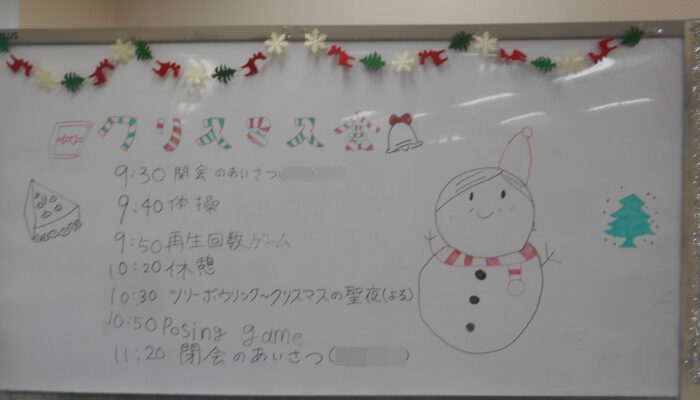 クリスマス会
9:30 開会のあいさつ
9:40 体操
9:50 再生回数ゲーム
10:20 休憩
10:30 ツリーボウリング～クリスマスの聖夜(よる)
10:50 Posing game
11:20 閉会のあいさつ( )